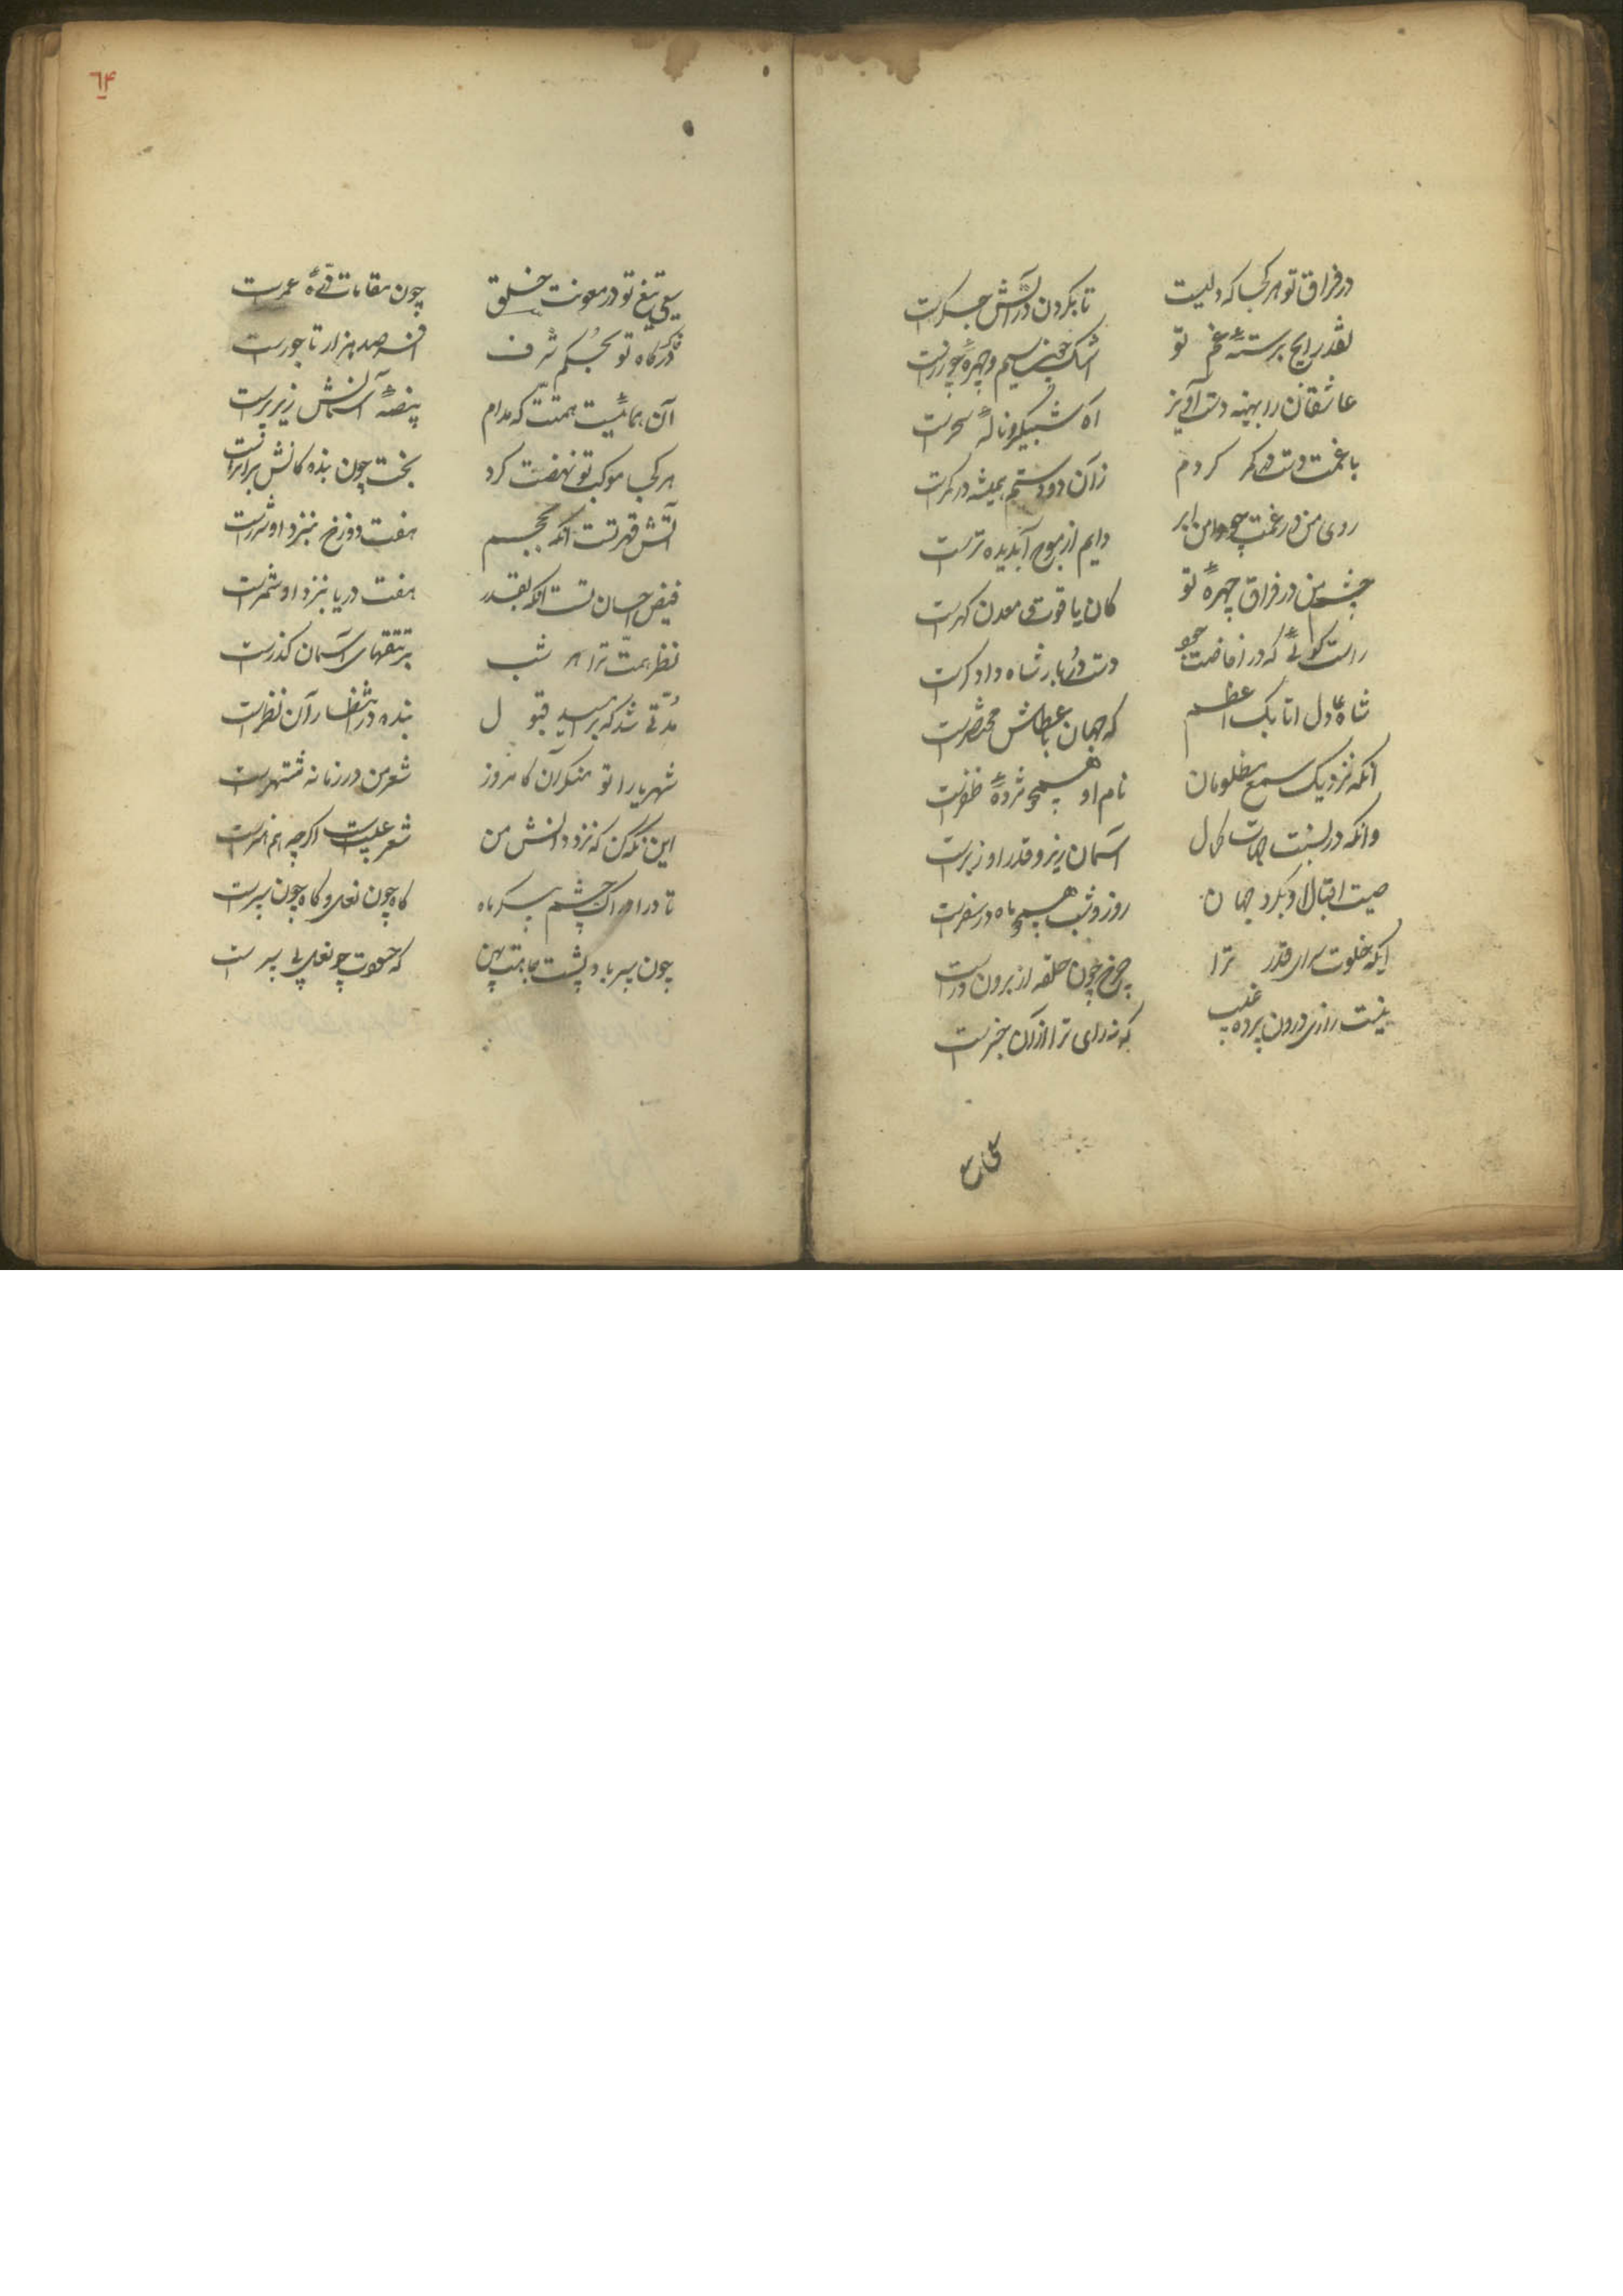 در فراق تو هر کجا که دلیست تا بکردن در آتش جکرست
نقد رایج برستهٔ غم تو اشک چون سیم و چهرهٔ چو زرست
عاشقان را بهینه دست آویز آه شبکیر و نالهٔ سحرست
با غمت دست در کمر کردم زآن دو دستم همیشه در کمرست
روی من در غمت چو دامن ابر دایم از موج آب دیده ترست
چشم من در فراق چهرهٔ تو کان یاقوت و معدن کهرست
راست کوئی که در افاضت جود دست دُربار شاه دادکرست
شاه عادل اتابک اعظم که جهان با عطاش مختصرست
آنکه نزدیک سمع مظلومان نام او همچو مژدهٔ ظفرست
وانکه در نسبت جهات کمال آسمان زیر و قدر او زبرست
صیت اقبال او بکرد جهان روز و شب همچو ماه در سفرست
ایکه خلوت سرای قدر ترا چرخ چون حلقه از برون درست
نیست رازی درون پرده غیب که نه رای ترا از آن خبرست
سعی تیغ
٦۴
سعی تیغ تو در معونت خلق چون مقامات درّهٔ عمرست
خاک درکاه تو بحُکم شرف افسر صد هزار تاجورست
آن همائیست همتّت که مدام بیضهٔ آسمانش زیر پرست
هر کجا موکب تو نهضت کرد بخت چون بنده کانش بر اثرست
آتش قهر تست آنکه بجسم هفت دوزخ بنزد او شررست
فیض احسان تست آنکه بقدر هفت دریا بنزد او شمرست
نظر همّت ترا هر شب بر تتقهای آسمان کذرست
مُدّتی شد که بر امید قبول بنده در انتظار آن نظرست
شهریارا تو منکر آن کامروز شعر من در زمانه مشتهرست
این نکه کن که نزد دانش من شعر عیبست اکرچه هم هنرست
تا در ادراک چشم پیکر ماه کاه چون نعل و کاه چون سپرست
چون سپر باد پشت جاهت پهن که حسودت چو نعل پی سپرست